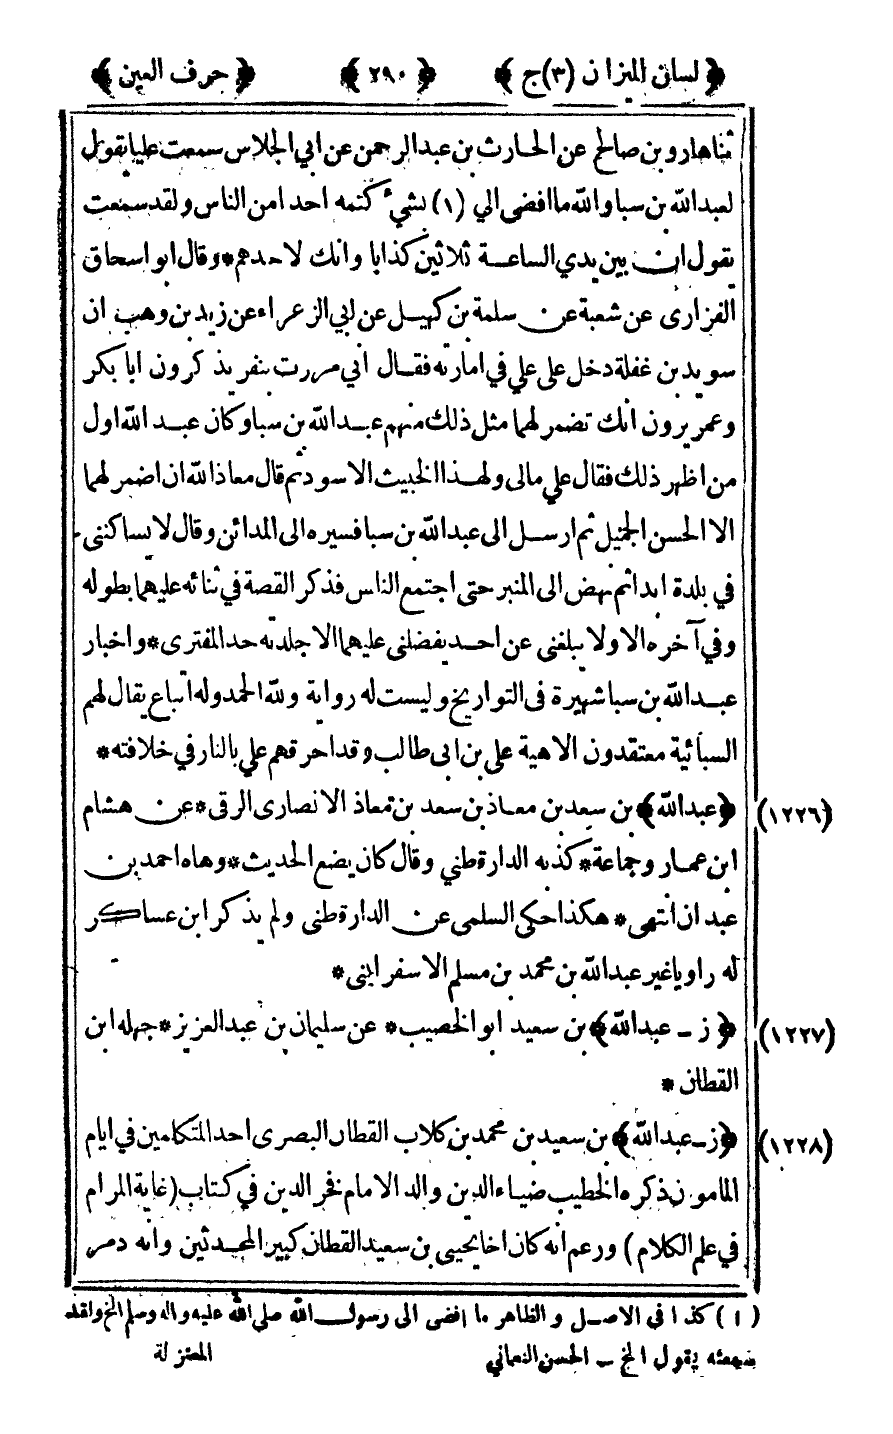 ﴿ لسان الميزان (٣)ج ﴾ ﴿ ٢٩٠ ﴾ ﴿ حرف العين ﴾
ثنا هارون بن صالح عن الحارث بن عبد الرحمن عن ابي الجلاس سمعت عليا يقول
لعبد الله بن سبا والله ما افضى الي (١) بشيء كتمه احدا من الناس ولقد سمعت
يقول ان بين يدي الساعة ثلاثين كذابا وانك لاحدهم * وقال ابو اسحاق
الفزارى عن شعبة عن سلمة بن كهيل عن ابي الزعراء عن زيد بن وهب ان
سويد بن غفلة دخل على علي في امارته فقال اني مررت بنفر يذكرون ابا بكر
وعمر يرون انك تضمر لهما مثل ذلك منهم عبد الله بن سبا وكان عبد الله اول
من اظهر ذلك فقال علي مالى ولهذا الخبيث الاسود ثم قال معاذ الله ان اضمر لهما
الا الحسن الجميل ثم ارسل الى عبد الله بن سبا فسيره الى المدائن وقال لا يساكننى
في بلدة ابدا ثم نهض الى المنبر حتى اجتمع الناس فذكر القصة في ثنائه عليهما بطوله
وفي آخره الا ولا يبلغنى عن احد يفضلنى عليهما الا جلدته حد المفترى * واخبار
عبد الله بن سبا شهيرة فى التواريخ وليست له رواية ولله الحمد وله اتباع يقال لهم
السبائية معتقدون الاهية على بن ابى طالب وقد احرقهم علي بالنار في خلافته *
(١٢٢٦) ﴿عبد الله﴾ بن سعد بن معاذ بن سعد بن معاذ الانصارى الرقى * عن هشام
ابن عمار وجماعة * كذبه الدارقطني وقال كان يضع الحديث * وهاه احمد بن
عبدان انتهى * هكذا حكى السلمى عن الدارقطنى ولم يذكر ابن عساكر
له راويا غير عبد الله بن محمد بن مسلم الاسفرائنى *
(١٢٢٧) ﴿ ز ـ عبد الله﴾ بن سعيد ابو الخصيب * عن سليمان بن عبد العزيز * جهله ابن
القطان *
(١٢٢٨) ﴿ز ـ عبد الله﴾ بن سعيد بن محمد بن كلاب القطان البصرى احد المتكلمين في ايام
المامون ذكره الخطيب ضياء الدين والد الامام فخر الدين في كتاب (غاية المرام
في علم الكلام) وزعم انه كان اخا يحيى بن سعيد القطان كبير المحدثين وانه دمر
(١) كذا في الاصل و الظاهر ما افضى الى رسول الله صلي الله عليه واله وسلم الخ ولقد
سمعته يقول الخ ـ الحسن النعماني المعتزلة